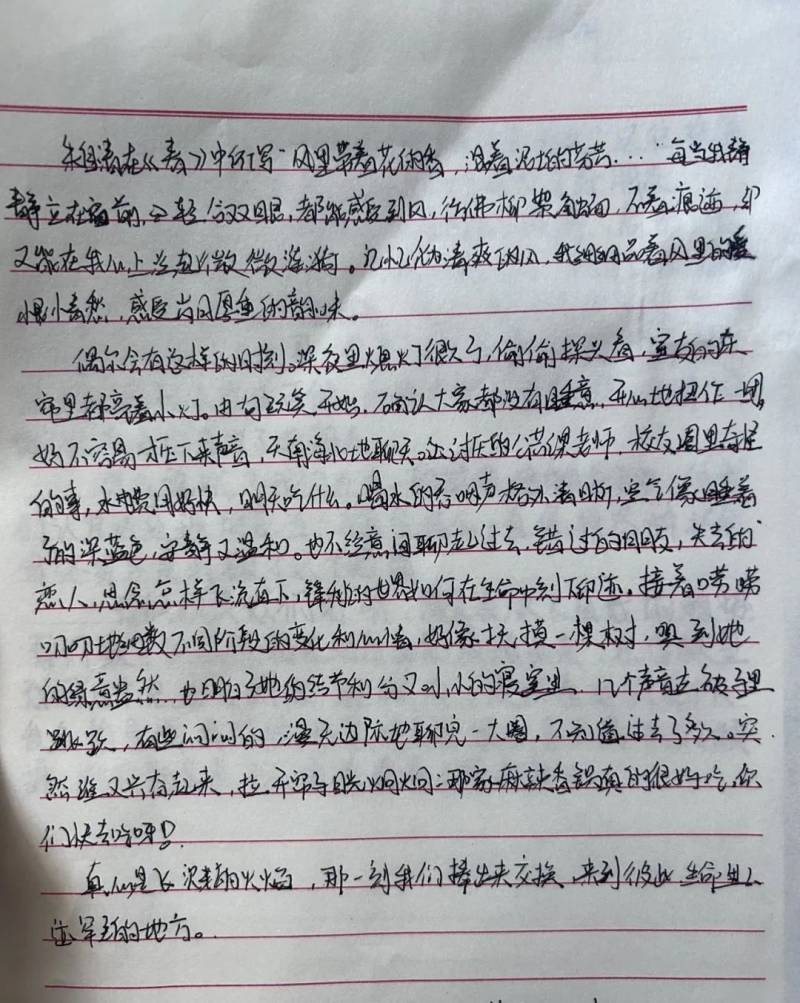 朱自清在《春》中所写“风里带着花的香,混着泥土的芳苦...”每当我静
静立在窗前,轻合双眼,都能感受到风,行佛柳絮触面,不着痕迹,却
又能在我心上泛起微微涟漪。记忆化为清爽的风,我细细品着风里的
小青愁,感受岁月厚重的韵味。
偶尔会有这样的时刻。深夜里熄灯很久了,偷偷探头看,室友的床
帘里都亮着小灯。由句玩笑开始,确认大家都没有睡意,开心地扭作一团,
好不容易压下来声音,天南海北地聊天。让讨厌的满课老师,校友圈里奇怪
的事,水电费用好快,明天吃什么。喝水的吞咽声格外清晰,空气像睡着
了的深蓝色,安静又温和。也不经意间聊起过去,错过的朋友,失去的
恋人,思念怎样飞流直下,锋利的世界如何在生命中刻下印迹。接着唠唠
叨叨地细数不同阶段的变化和心情,好像抚摸一棵树,嗅到她
的绿意盎然,也明了她的结节和分叉。小小的寝室里,几个声音在被子里
跳跃,有些闷闷的,漫无边际地聊完一大圈,不知道过去了多久。突
然谁又兴奋起来,拉开帘子目光炯炯:那家麻辣香锅真的很好吃,你
们快去吃呀!
真心是飞溅的火焰,那一刻我们捧出来交换,来到彼此生命里
罕至的地方。